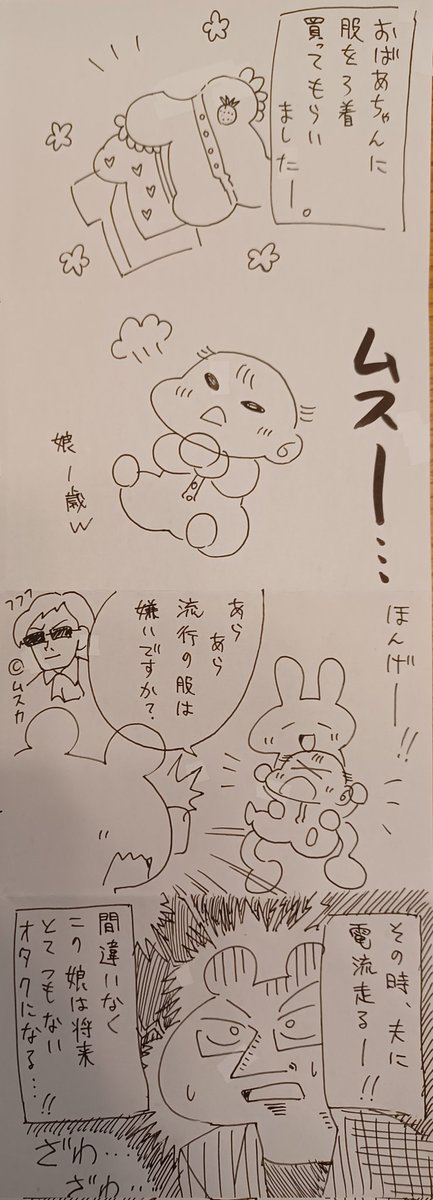 おばあちゃんに
服を3着
買ってもらい
ましたー。
ムスー…
娘1歳w
ほんげー!!
あら
あら
流行の服は
嫌いですか?
ククク
©ムスカ
その時、夫に
電流走るー!!
間違いなく
この娘は将来
とてつもない
オタクになる…!!
ざわ…
ざわ…